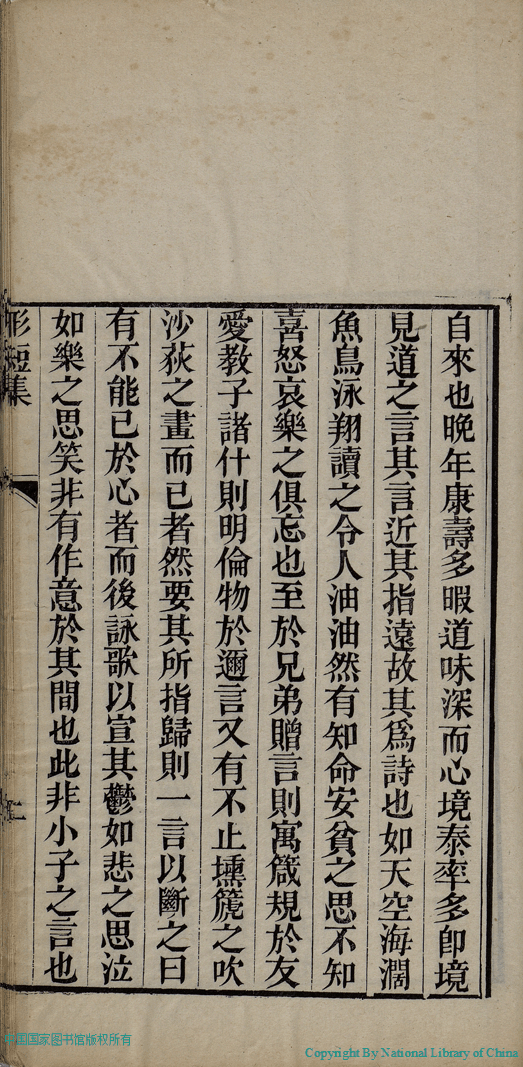 自來也晚年康壽多暇道味深而心境泰率多卽境
見道之言其言近其指遠故其爲詩也如天空海濶
魚鳥泳翔讀之令人油油然有知命安貧之思不知
喜怒哀樂之俱忘也至於兄弟贈言則寓箴規於友
愛教子諸什則明倫物於邇言又有不止壎篪之吹
沙荻之畫而已者然要其所指歸則一言以斷之曰
有不能已於心者而後詠歌以宣其鬱如悲之思泣
如樂之思笑非有作意於其間也此非小子之言也
形短集
二
中国国家图书馆版权所有
Copyright By National Library of China